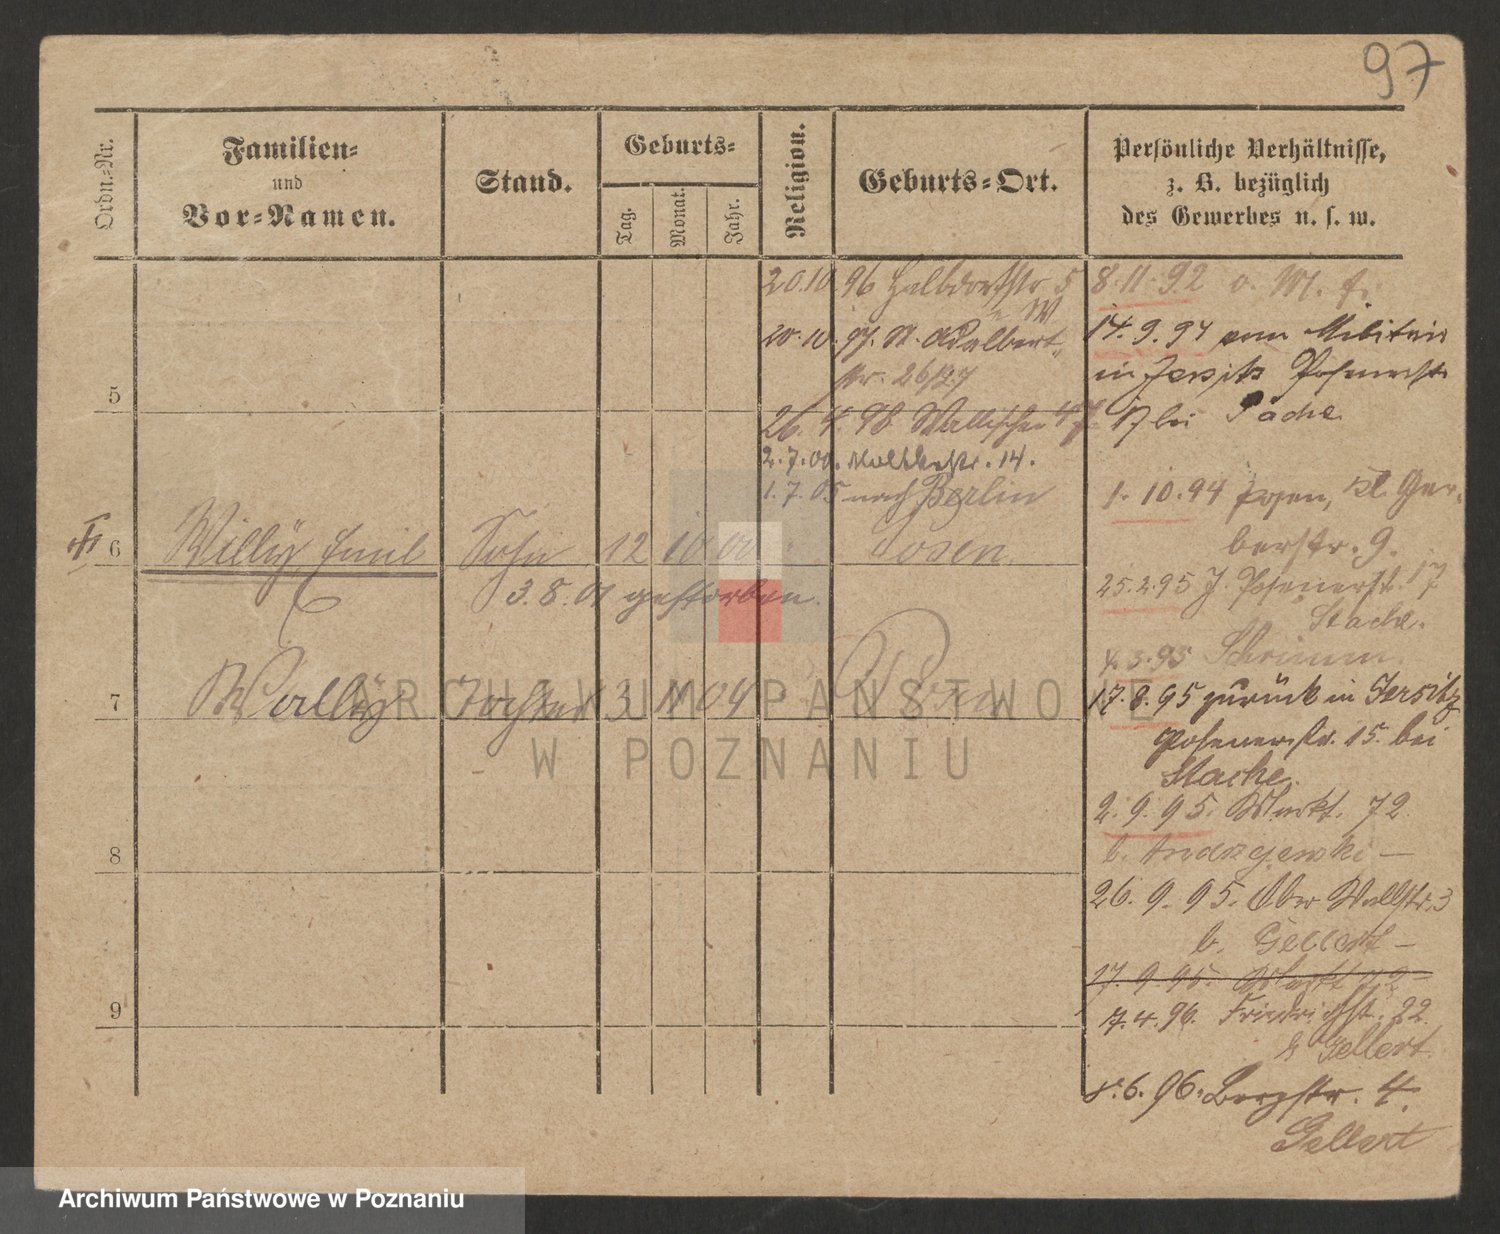 97
Ordn.-Nr.
Familien-
und
Vor-Namen.
Stand.
Geburts-
Tag.
Monat.
Jahr.
Religion.
Geburts-Ort.
Persönliche Verhältnisse,
z. B. bezüglich
des Gewerbes u. s. w.
20.10.96 Halbdorfstr 5
20.10.97. St. Adalbert
str. 26/27
26.4.98. Wallischei
2.7.00. Moltkestr. 14.
1.7.05 nach Berlin
5
6 Willy Emil Sohn 12 10 00 Posen
3.8.01 gestorben.
7 Wally Tochter 3 11 04 Posen
8
9
8.11.92
14.9.94 vom Militair
in Jersitz Posenerstr
17 bei Stache
1.10.94 Posen, kl. Ger-
berstr. 9.
25.2.95 J. Posenerst. 17
Stache.
4.3.95 Schrimm.
17.8.95 zurück in Jersitz
Posenerstr. 15. bei
Stache.
2.9.95. Markt. 72
b. Andrzejewski —
26.9.95. Ober Wallstr. 3
b. Gellert —
17.9.95. Markt 72
7.4.96. Friedrichst. 22
b Gellert
8.6.96. Bergstr. 4.
Gellert
ARCHIWUM PAŃSTWOWE
W POZNANIU
Archiwum Państwowe w Poznaniu